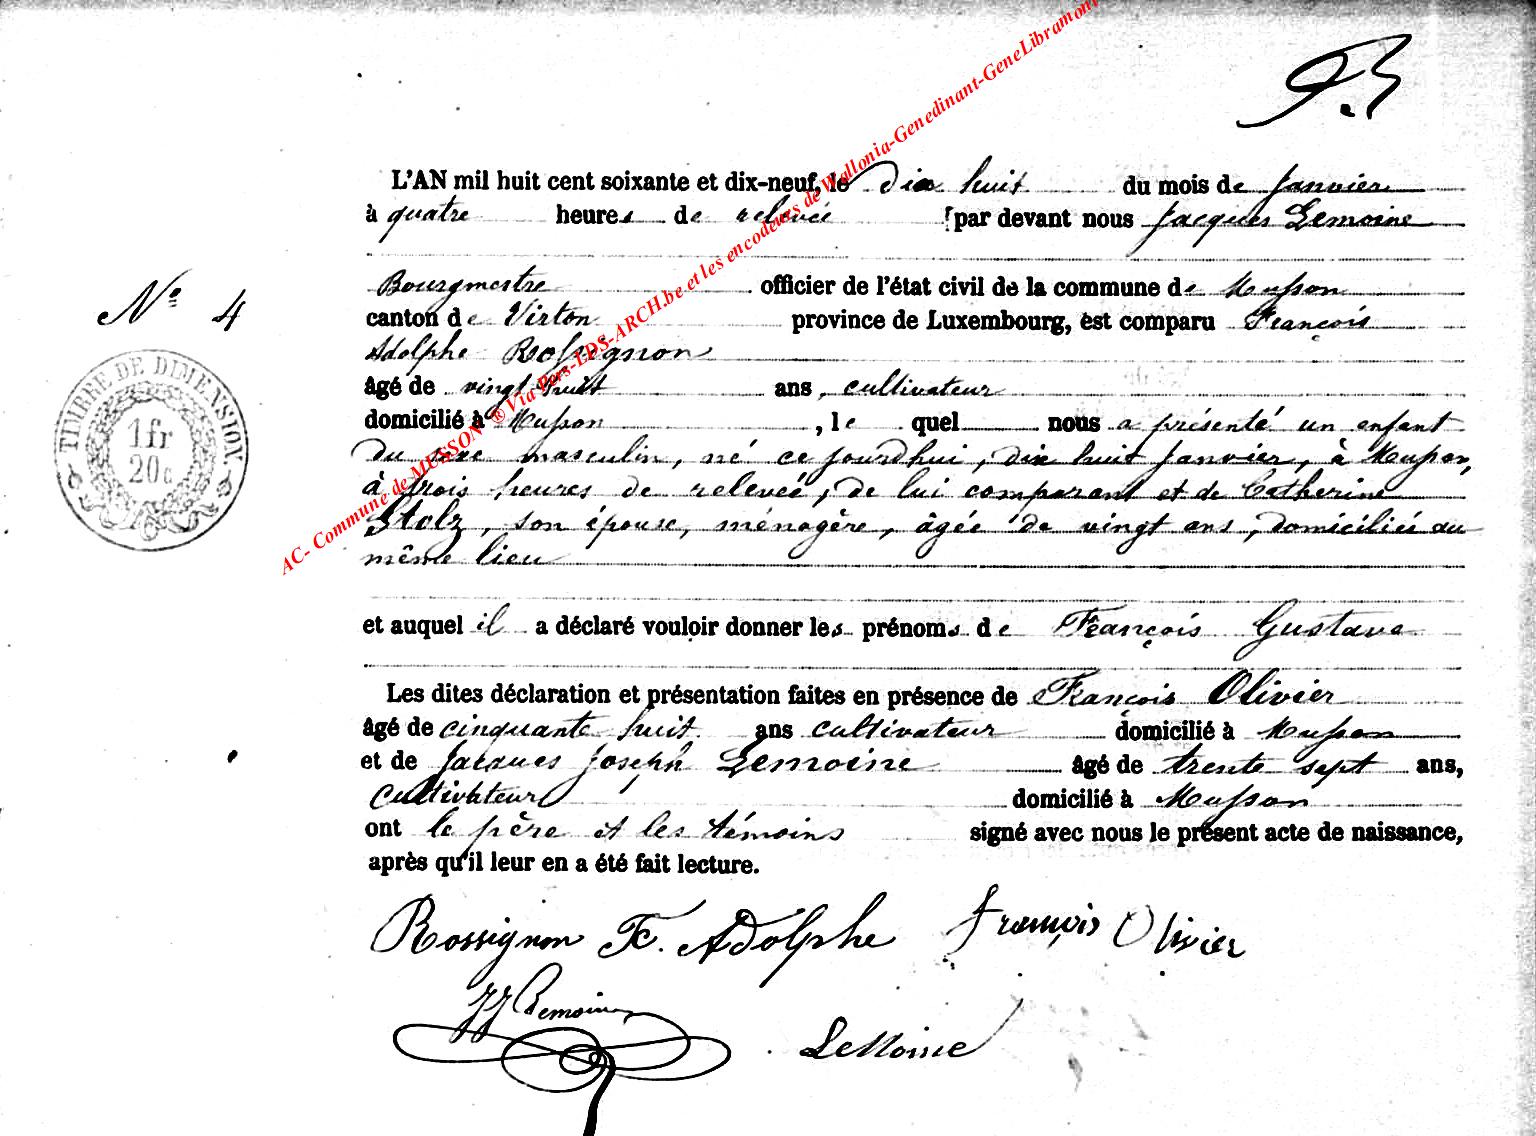 L'AN mil huit cent soixante et dix-neuf, le dix huit du mois de Janvier
à quatre heures de relevée par devant nous Jacques Lemoine
Bourgmestre officier de l'état civil de la commune de Musson
canton de Virton province de Luxembourg, est comparu François
Adolphe Rossignon
âgé de vingt huit ans, cultivateur
domicilié à Musson, le quel nous a présenté un enfant
du sexe masculin, né ce jourd'hui, dix huit Janvier, à Musson,
à trois heures de relevée, de lui comparant et de Catherine
Stolz, son épouse, ménagère, âgée de vingt ans, domiciliée au
même lieu
et auquel il a déclaré vouloir donner les prénoms de François Gustave
Les dites déclaration et présentation faites en présence de François Olivier
âgé de cinquante huit ans cultivateur domicilié à Musson
et de Jacques Joseph Lemoine âgé de trente sept ans,
cultivateur domicilié à Musson
ont le père et les témoins signé avec nous le présent acte de naissance,
après qu'il leur en a été fait lecture.
Rossignon F. Adolphe François Olivier
JJ Lemoine
LeMoine
N° 4
TIMBRE DE DIMENSION.
1 fr
20 c
AC- Commune de MUSSON ® Via Pers-LDS-ARCH.be et les encodeurs de Wallonia-Genedinant-GeneLibramont